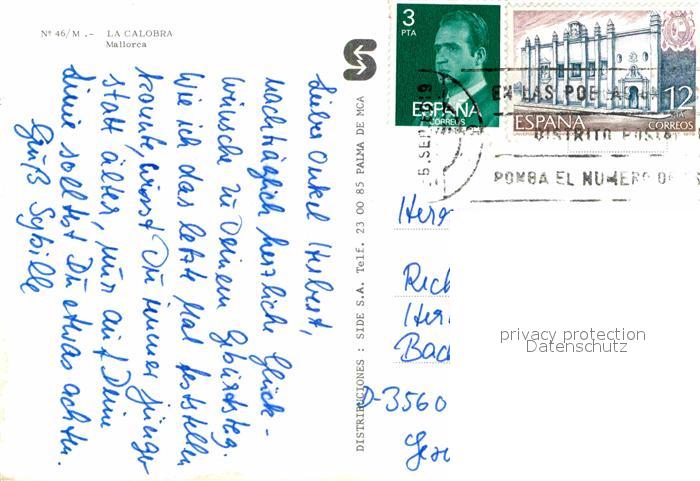 Nº 46/M .- LA CALOBRA
Mallorca
Liebe Onkel Herbert,
nachträglich herzliche Glück-
wünsche zu Deinem Geburtstag.
Wie ich das letzte Mal feststellen
konnte, wirst Du immer jünger
statt älter, nur auf Deine
Linie solltest Du etwas achten.
Gruß Sybille
DISTRIBUCIONES : SIDE S.A. Telf. 23 00 85 PALMA DE MCA
3
PTA
ESPAÑA
CORREOS
12
PTA
ESPAÑA
CORREOS
EN LAS POB
DISTRITO POSTA
PONGA EL NUMERO DE
Herr
Rich
Her
Bac
D-3560
privacy protection
Datenschutz